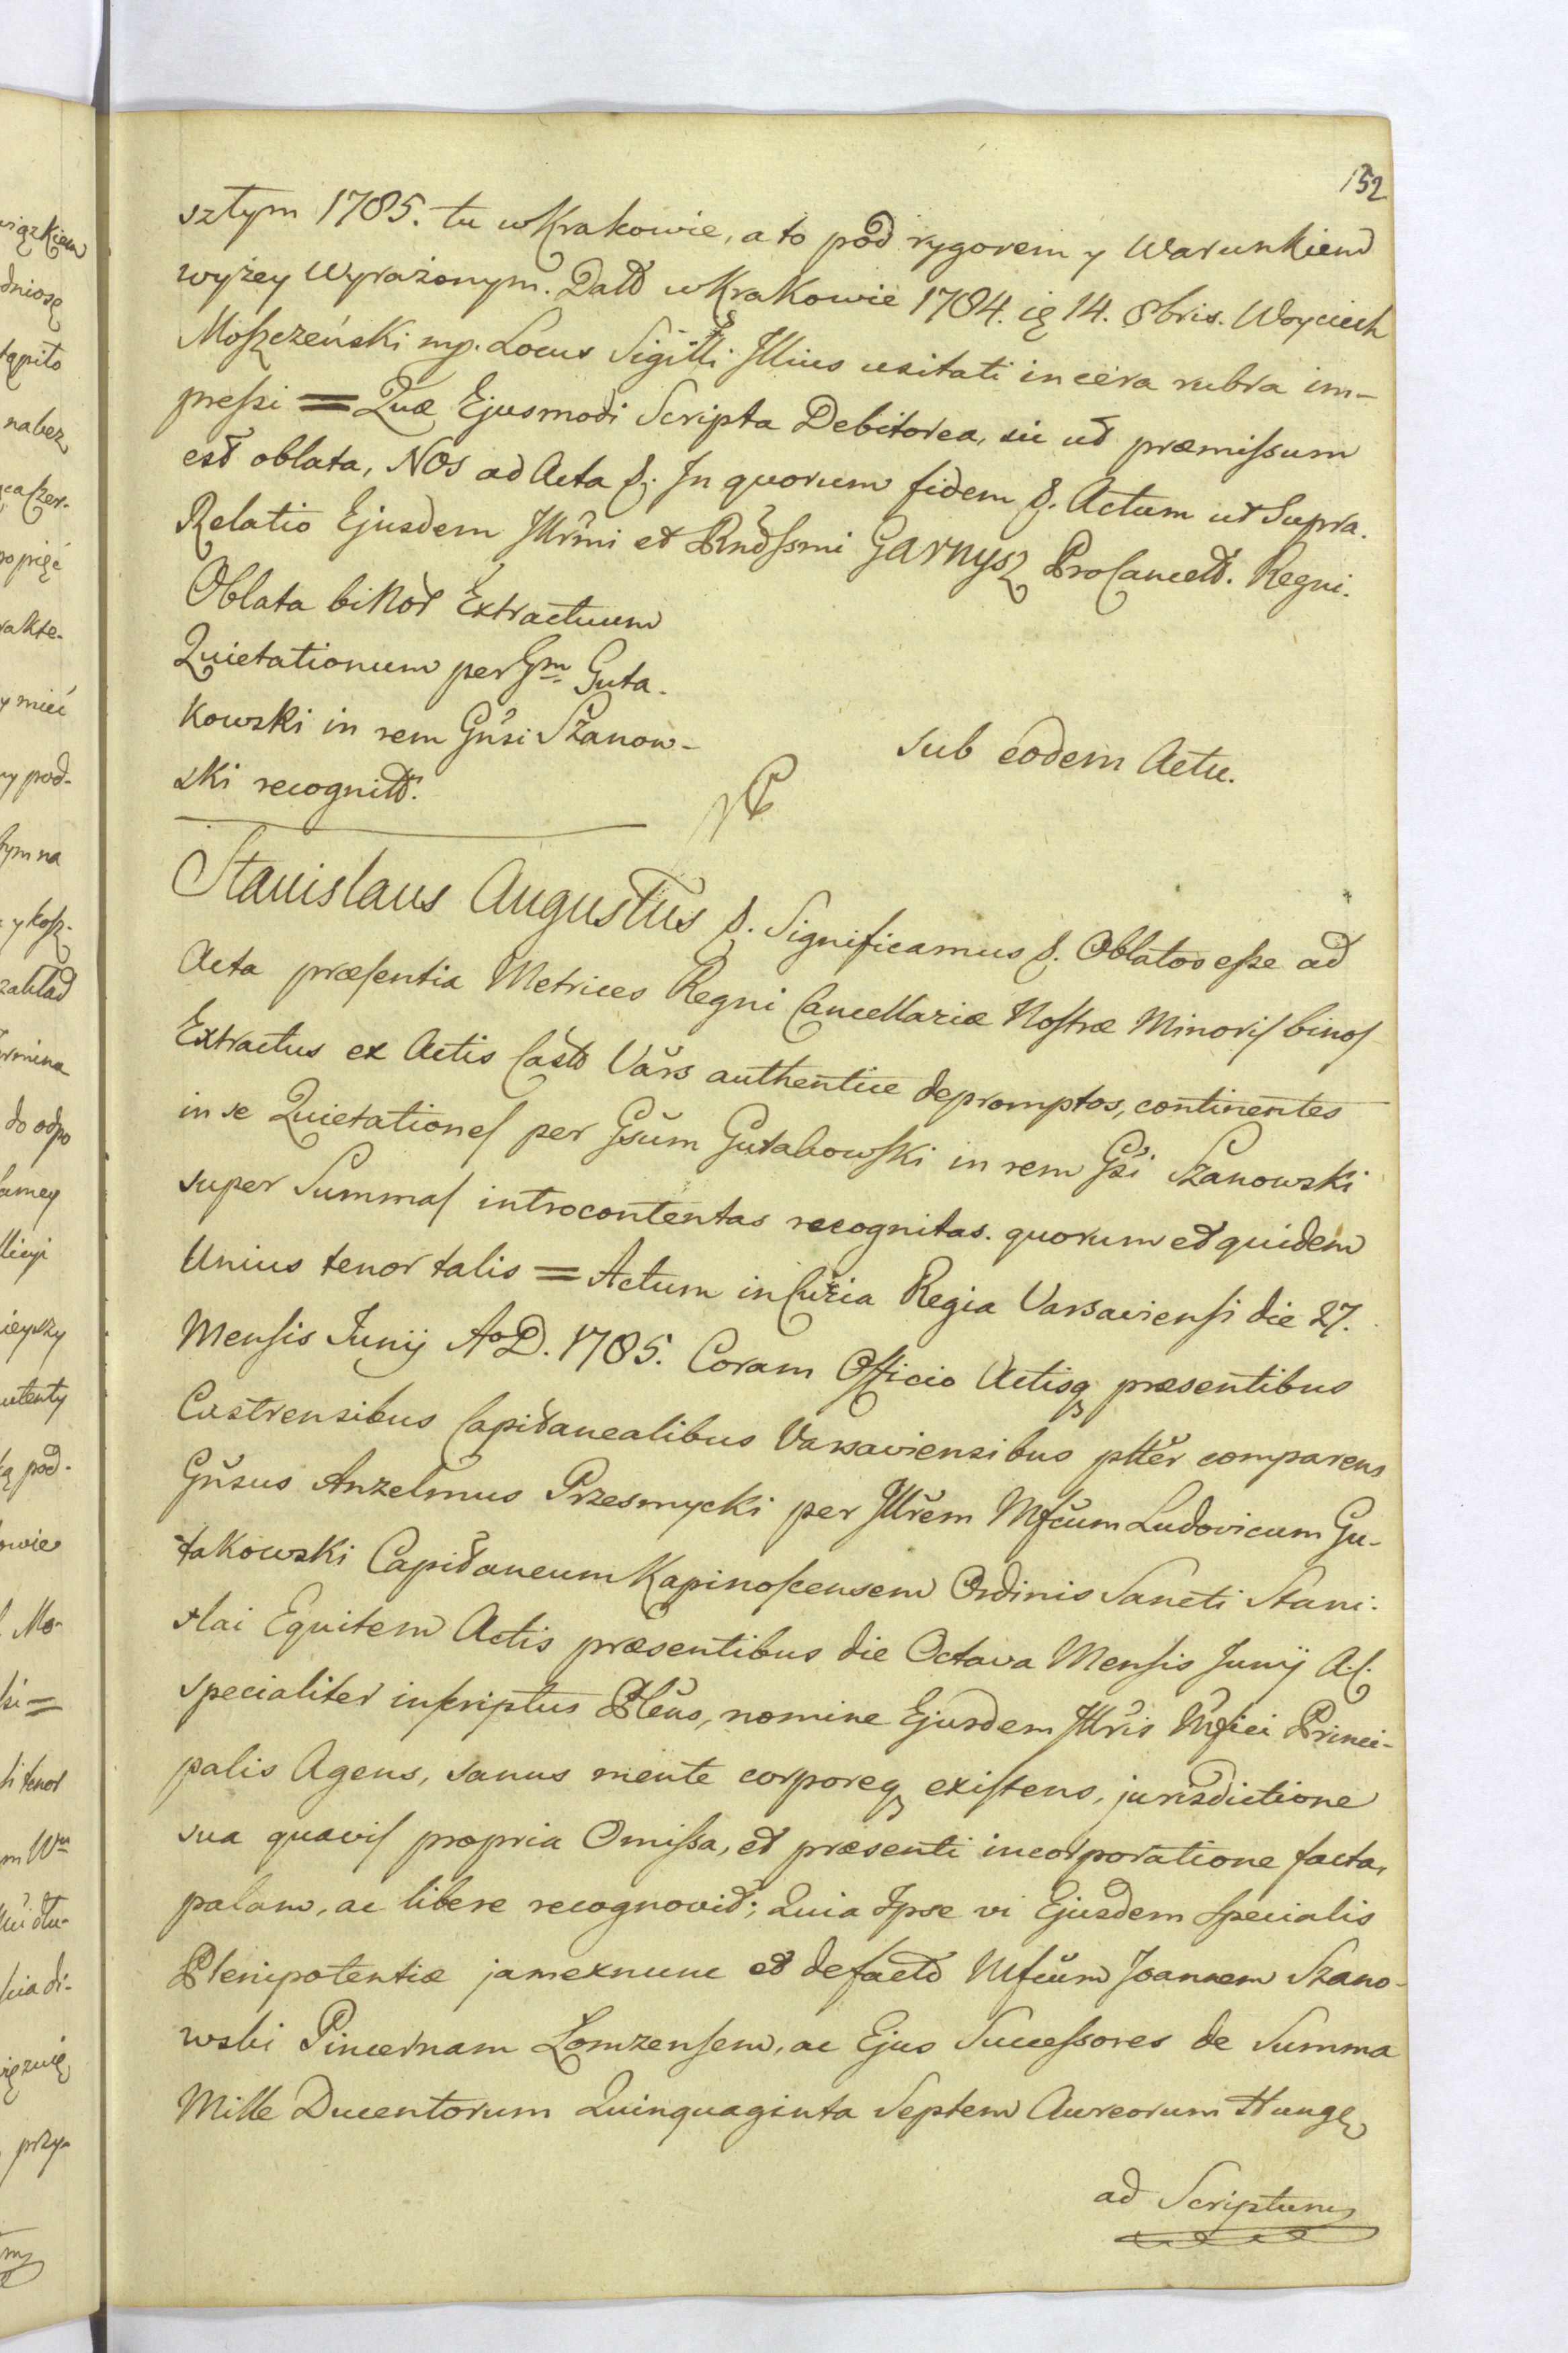 152
sztym 1785. tu w Krakowie, a to pod rygorem y Warunkiem
wyżey Wyrażonym. Datt w Krakowie 1784. ię 14. 8bris. Woyciech
Moszczeński mp. Locus Sigilli Illius usitati in cera rubra im-
pressi = Quæ Ejusmodi Scripta Debitorea, sic ut præmissum
est oblata, NOS ad Acta &. In quorum fidem &. Actum ut Supra.
Relatio Ejusdem Illrmi et Rndssmi Garnysz ProCancell. Regni.
Oblata binor Extractuum
Quietationum per Gm Guta-
kowski in rem Gnsi Szanow-
ski recognitt.
sub eodem Actu.
Stanislaus Augustus &. Significamus &. Oblatos esse ad
Acta præsentia Metrices Regni Cancellariæ Nostræ Minoris binos
Extractus ex Actis Castt Vars authentice depromptos, continentes
in se Quietationes per Gsum Gutakowski in rem Gsi Szanowski
super Summas introcontentas recognitas. quorum et quidem
Unius tenor talis = Actum in Curia Regia Varsaviensi die 27.
Mensis Junij A. D. 1785. Coram Officio Actisq præsentibus
Castrensibus Capitanealibus Varsaviensibus plter comparens
Gnsus Anzelmus Przesmycki per Illrem Mfcum Ludovicum Gu-
takowski Capitaneum Kapinoscensem Ordinis Sancti Stani-
slai Equitem Actis præsentibus die Octava Mensis Junij A. C.
specialiter inscriptus Plens, nomine Ejusdem Illris Mfici Princi-
palis Agens, sanus mente corporeq existens, jurisdictione
sua quavis propria Omissa, et præsenti incorporatione facta,
palam, ac libere recognovit; Quia Ipse vi Ejusdem specialis
Plenipotentiæ jamexnunc et defacto Mfcum Joannem Szano-
wski Pincernam Lomzensem, ac Ejus Successores de Summa
Mille Ducentorum Quinquaginta Septem Aureorum Hung
ad Scriptum